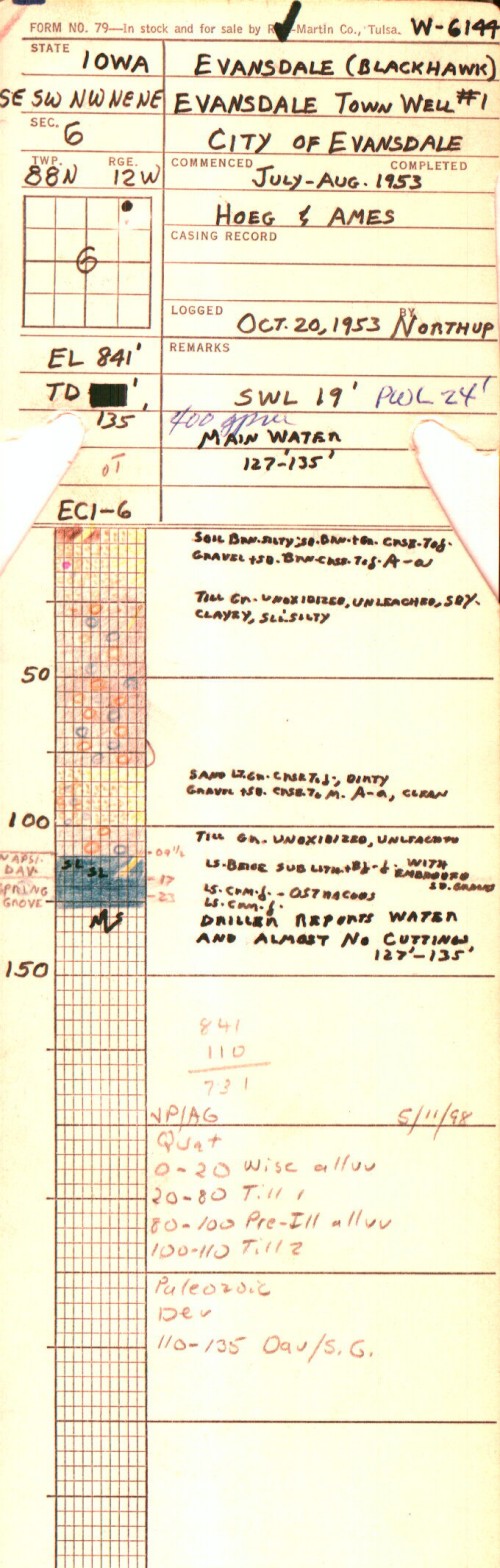 FORM NO. 79—In stock and for sale by R -Martin Co., Tulsa. W-6144
STATE
IOWA
EVANSDALE (BLACKHAWK)
SE SW NW NE NE
EVANSDALE TOWN WELL #1
SEC. 6
CITY OF EVANSDALE
TWP. RGE.
88N 12W
COMMENCED COMPLETED
JULY-AUG. 1953
HOEG & AMES
6
CASING RECORD
LOGGED BY
OCT. 20, 1953 NORTHUP
EL 841'
REMARKS
TD '
135'
SWL 19' PWL 24'
400 gpm
MAIN WATER
127'-135'
OT
EC1-6
SOIL BRN. SILTY; SD. BRN + GN. CRSE. TO f.
GRAVEL + SD. BRN-CRSE. TO f. A-a
TILL GN. UNOXIDIZED, UNLEACHED, SDY.
CLAYEY, SLI. SILTY
50
SAND LT. GN. CRSE. TO f., DIRTY
GRAVEL + SD. CRSE. TO M. A-a, CLEAN
100
TILL GN. UNOXIDIZED, UNLEACHED
WAPSI-
DAV.
SPRING
GROVE
SL
SL
17
23
LS-BEIGE SUB LITH + WITH
EMBEDDED
SD. GRAINS
LS. CRM-f. - OSTRACODS
LS. CRM-f.
NS
DRILLER REPORTS WATER
AND ALMOST NO CUTTINGS
127'-135'
150
841
110
731
VP/AG 5/11/98
Quat
0-20 Wisc alluv
20-80 Till 1
80-100 Pre-Ill alluv
100-110 Till 2
Paleozoic
Dev
110-135 Dav/S.G.